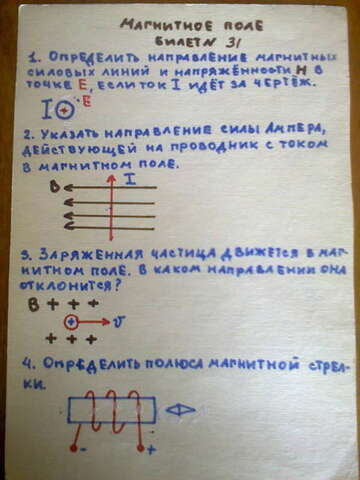 Магнитное поле
Билет N 31
1. Определить направление магнитных
силовых линий и напряжённости H в
точке E, если ток I идёт за чертёж.
I E
2. Указать направление силы Ампера,
действующей на проводник с током
в магнитном поле.
B I
3. Заряженная частица движется в маг-
нитном поле. В каком направлении она
отклонится?
B + + +
+ v
+ + +
4. Определить полюса магнитной стрел-
ки.
- +